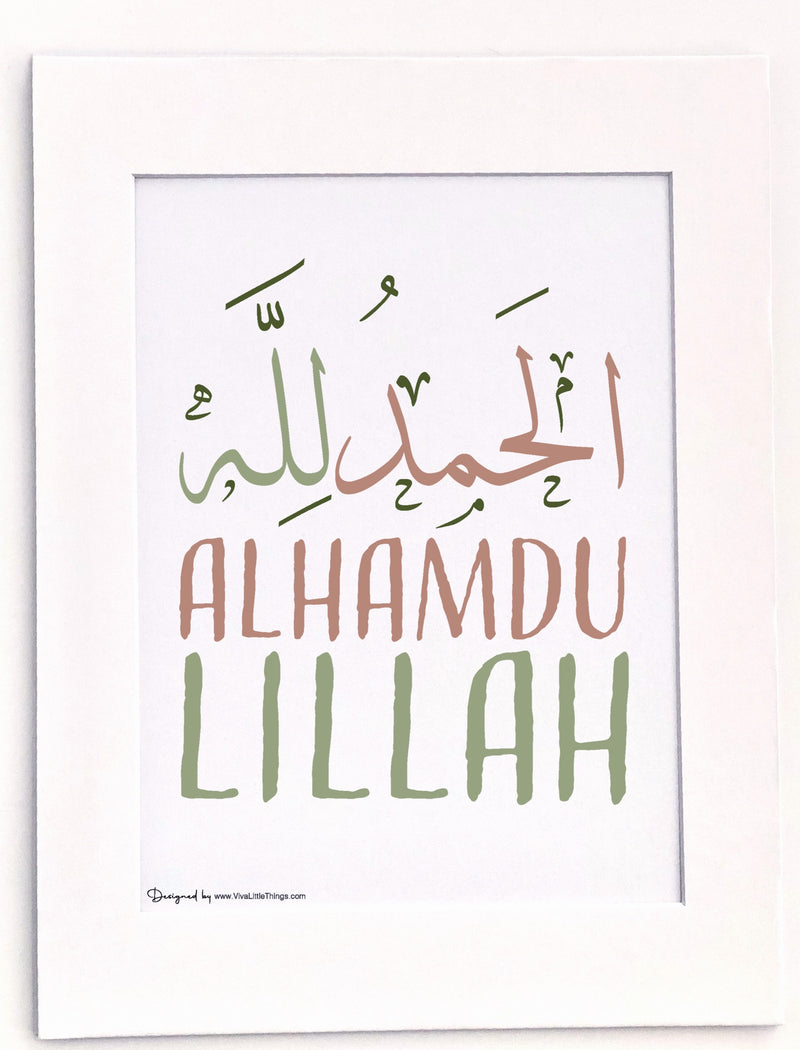 الحَمدُ لِلّه
ALHAMDU
LILLAH
Designed by www.VivaLittleThings.com